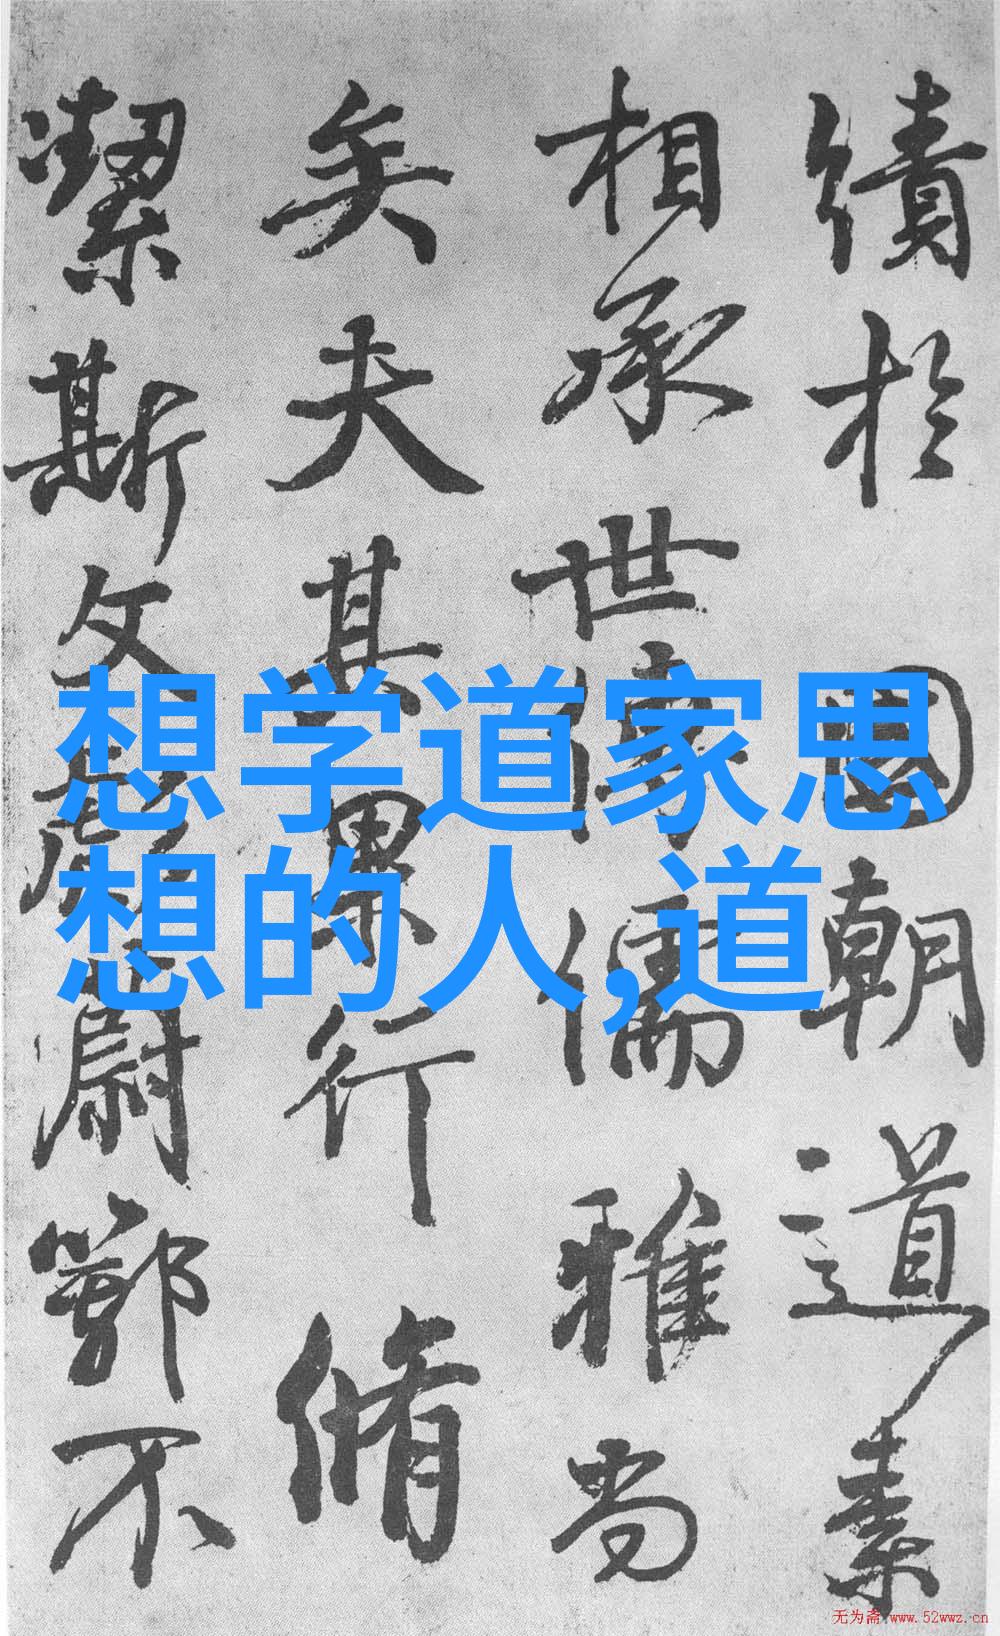 績於國朝道素
相承世傳儒雅尚
矣夫其果行脩
潔斯文彪蔚鄂不
想学道家思
想的人,道
无为斋 www.52wwz.cn